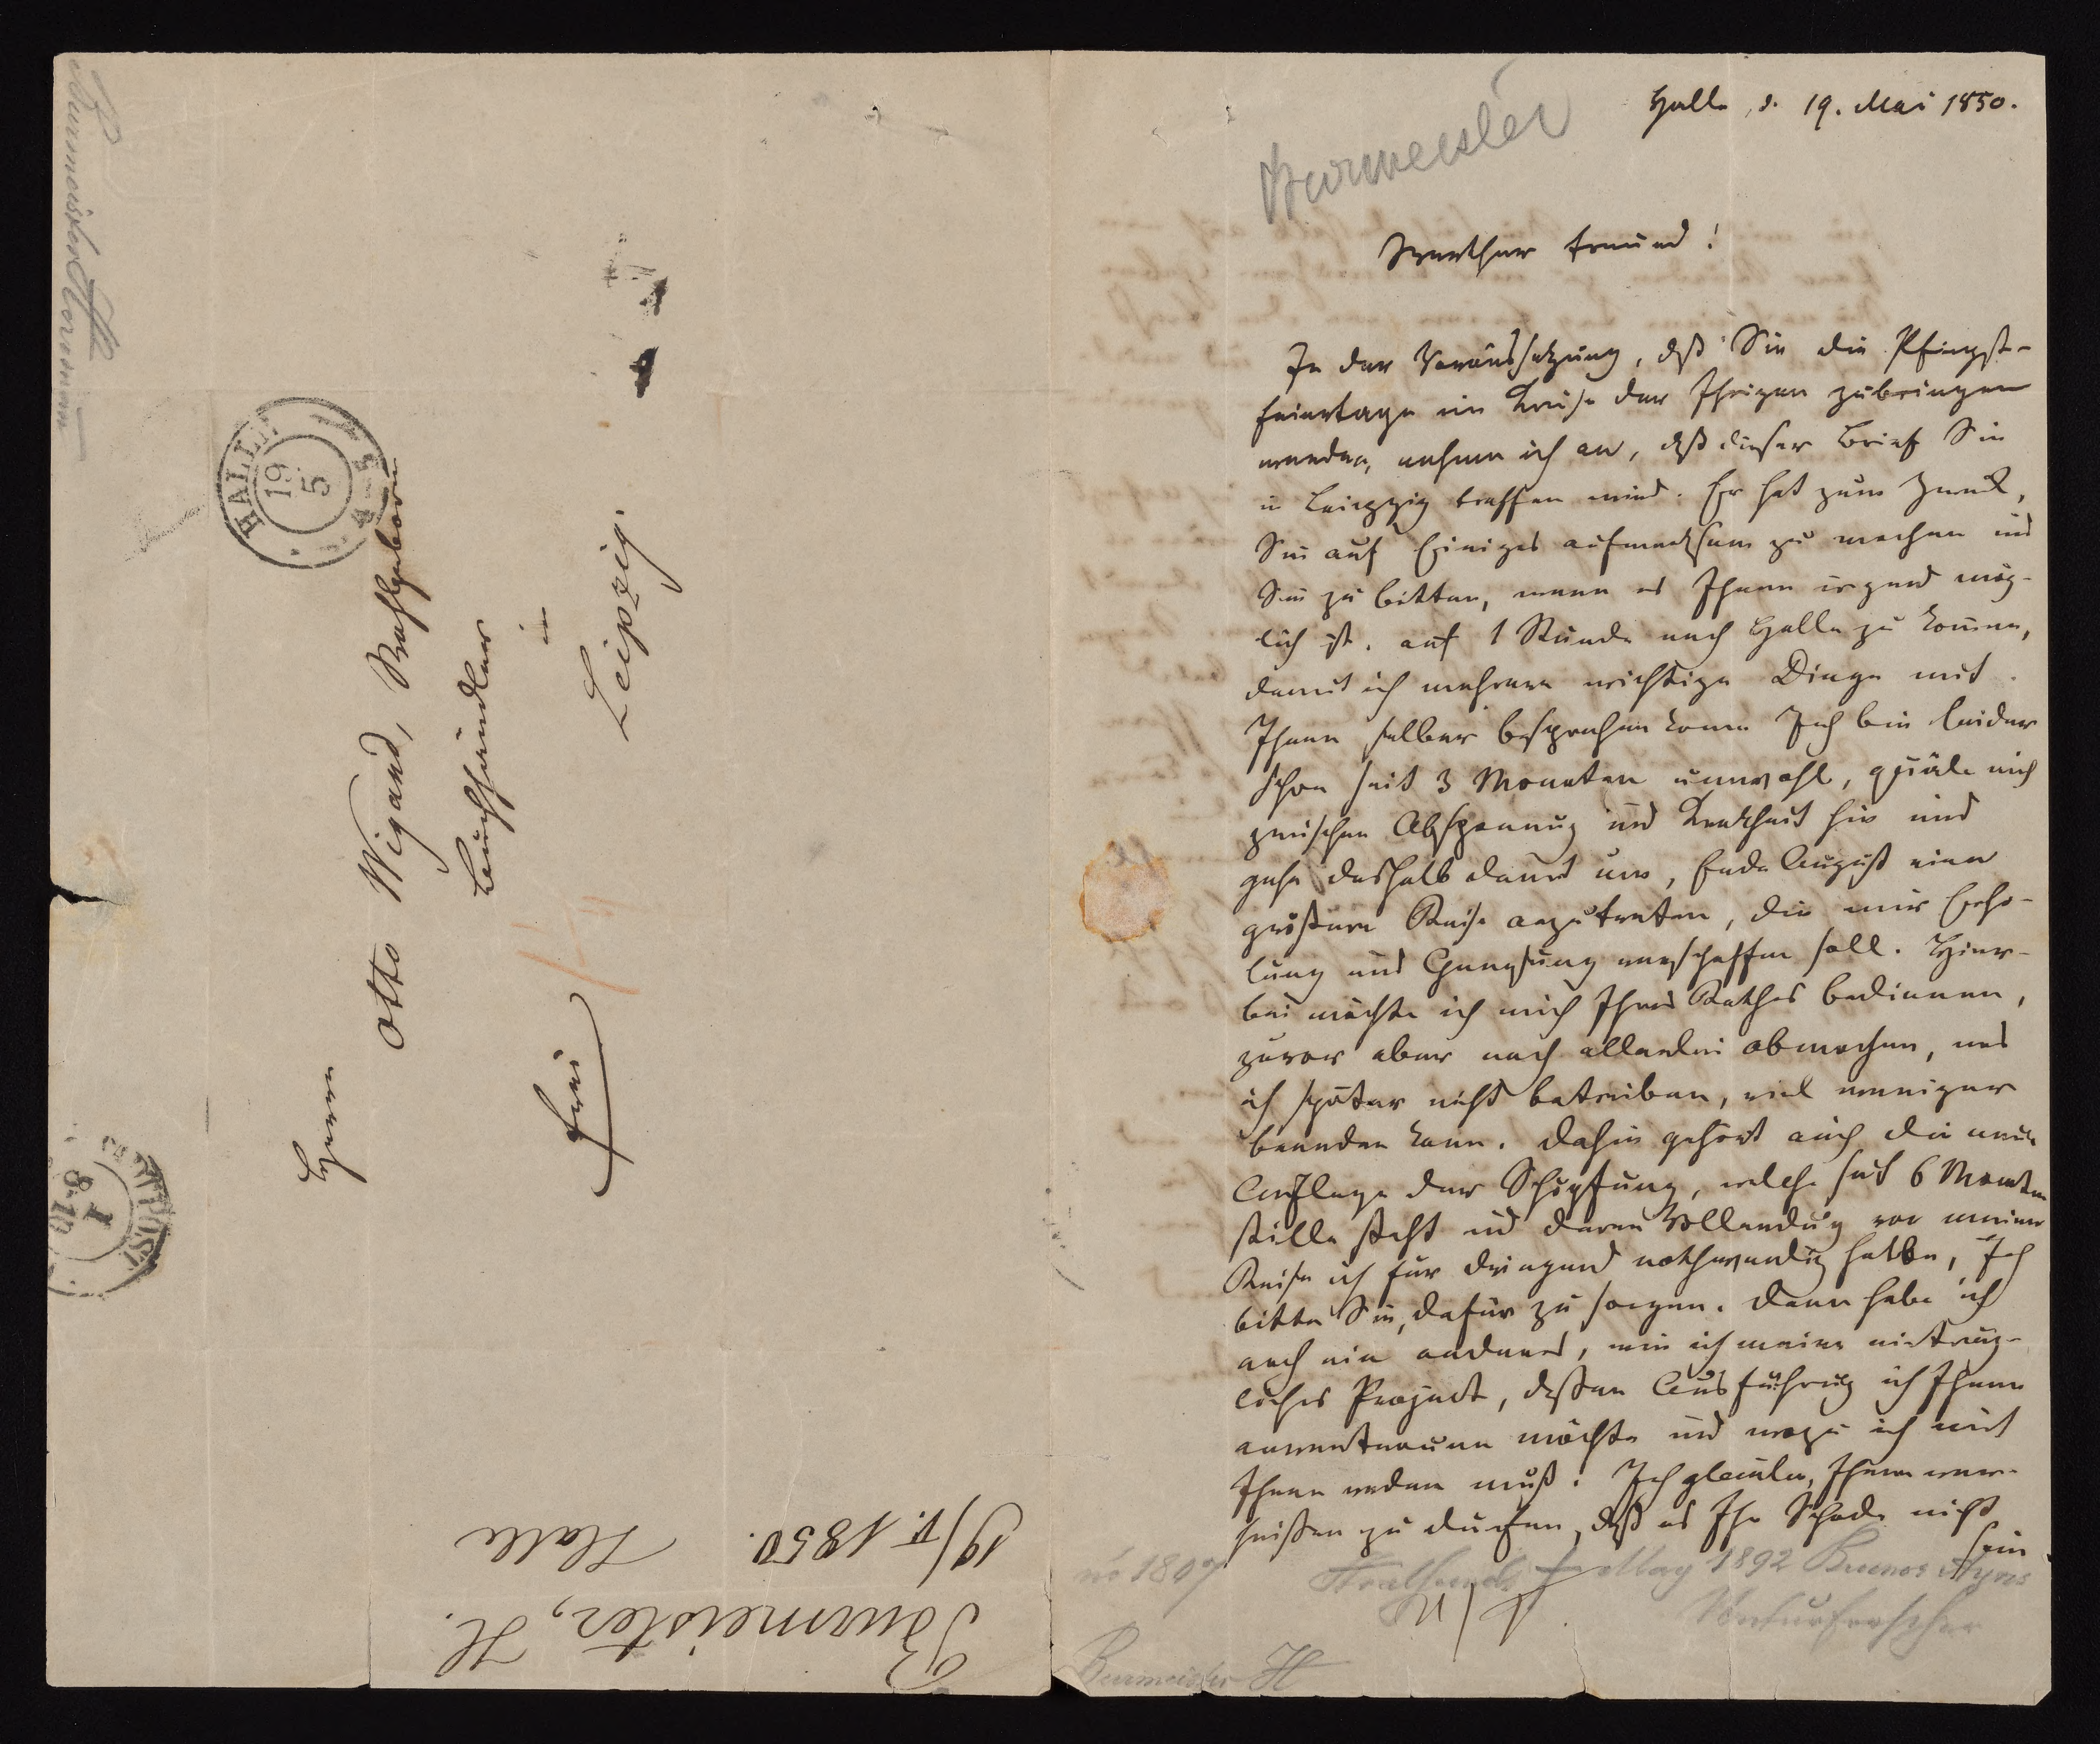 Halle, d. 19. Mai 1850.
Burmeister
Werther Freund!
In der Voraussetzung, daß Sie die Pfingst-
feiertage im Kreise der Ihrigen zubringen
werden, nehme ich an, daß dieser Brief Sie
in Leipzig treffen wird. Er hat zum Zweck,
Sie auf Einiges aufmerksam zu machen und
Sie zu bitten, wenn es Ihnen irgend mög-
lich ist, auf 1 Stunde nach Halle zu komen,
damit ich mehrere wichtige Dinge mit
Ihnen selber besprechen könne. Ich bin leider
schon seit 3 Monaten unwohl, quäle mich
zwischen Abspannung und Krankheit hin und
gehe deshalb damit um, Ende August eine
größere Reise anzutreten, die mir Erho-
lung und Genesung verschaffen soll. Hier-
bei möchte ich mich Ihres Rathes bedienen,
zuvor aber noch allerlei abmachen, was
ich später nicht betreiben, viel weniger
beenden kann. Dahin gehört auch die neue
Auflage der Schöpfung, welche seit 6 Monaten
stille steht und deren Vollendung vor meiner
Reise ich für dringend nothwendig halte, Ich
bitte Sie, dafür zu sorgen. Dann habe ich
noch ein anderes, wie ich meine einträg-
liches Project, deßen Ausführung ich Ihnen
anvertrauen möchte und wozu ich mit
Ihnen reden muß. Ich glaube, Ihnen ver-
heißen zu dürfen, daß es Ihr Schade nicht
sein
Stralsund † May 1892 Buenos Ayres
Naturforscher
Burmeister H
Burmeister Hermann
HALLE
19
5
Herrn
Otto Wigand, Wohlgeboren
Buchhändler
in
Leipzig.
frei
Burmeister, H.
19/V. 1850. Halle